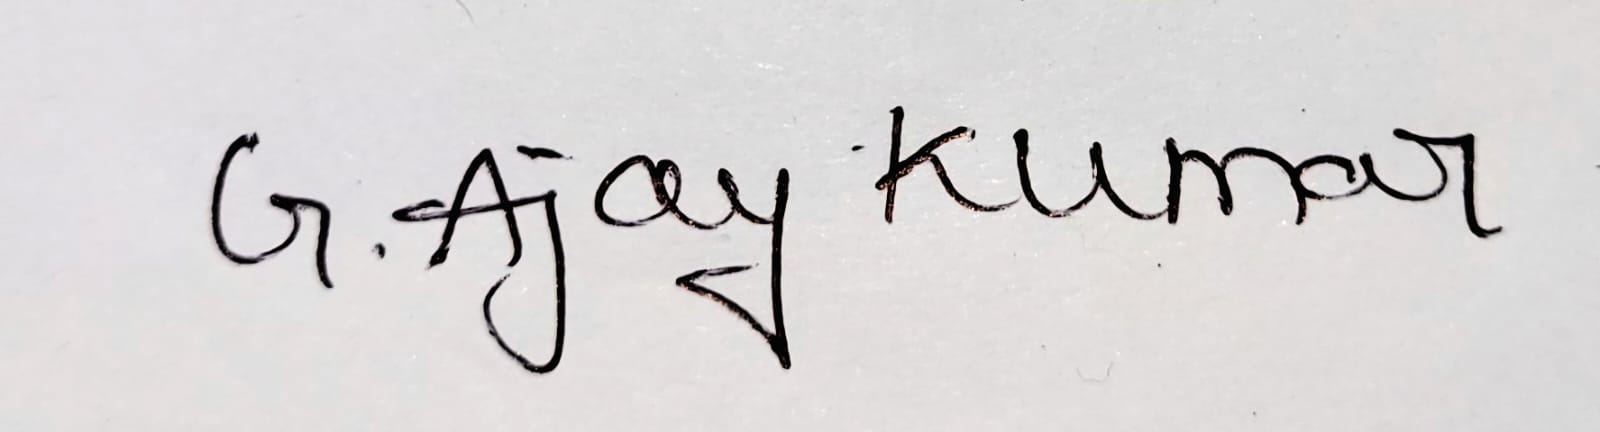 G. Ajay Kumar